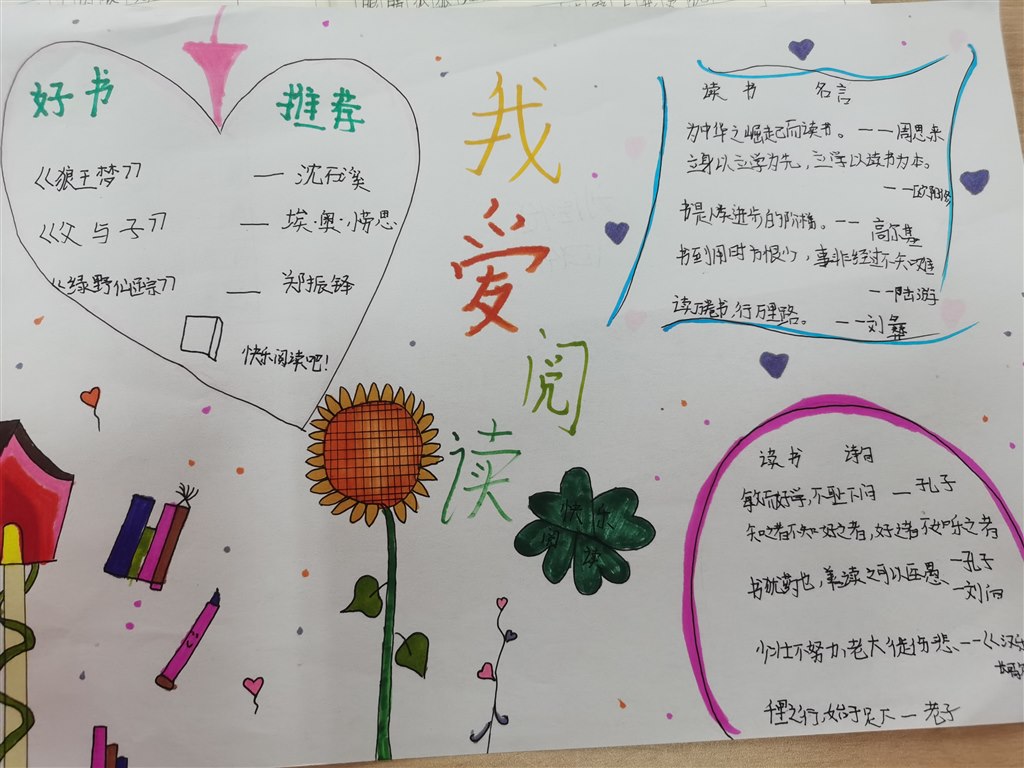 好书 推荐
《狼王梦》 — 沈石溪
《父与子》 — 埃·奥·愣思
《绿野仙踪》 — 郑振铎
快乐阅读吧!
我爱阅读
快乐
阅读
读书 名言
为中华之崛起而读书。——周恩来
立身以立学为先，立学以读书为本。
——欧阳修
书是人类进步的阶梯。——高尔基
书到用时方恨少，事非经过不知难
——陆游
读万卷书，行万里路。——刘彝
读书 诗句
敏而好学，不耻下问 — 孔子
知之者不如好之者，好之者不如乐之者
—孔子
书犹药也，善读之可以医愚 —刘向
少壮不努力，老大徒伤悲——《汉乐
千里之行，始于足下 — 老子